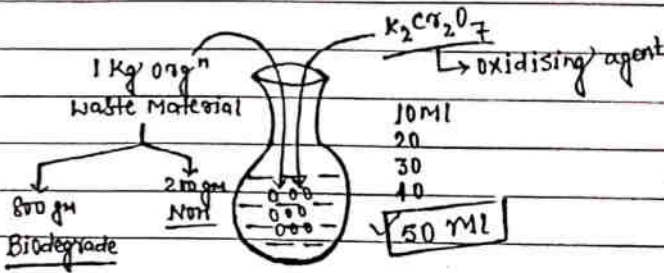 K₂Cr₂O₇
↳ oxidising agent
1 Kg orgⁿ
Waste Material
800 gm
Biodegrade
200 gm
Non
10 Ml
20
30
40
✓ 50 Ml